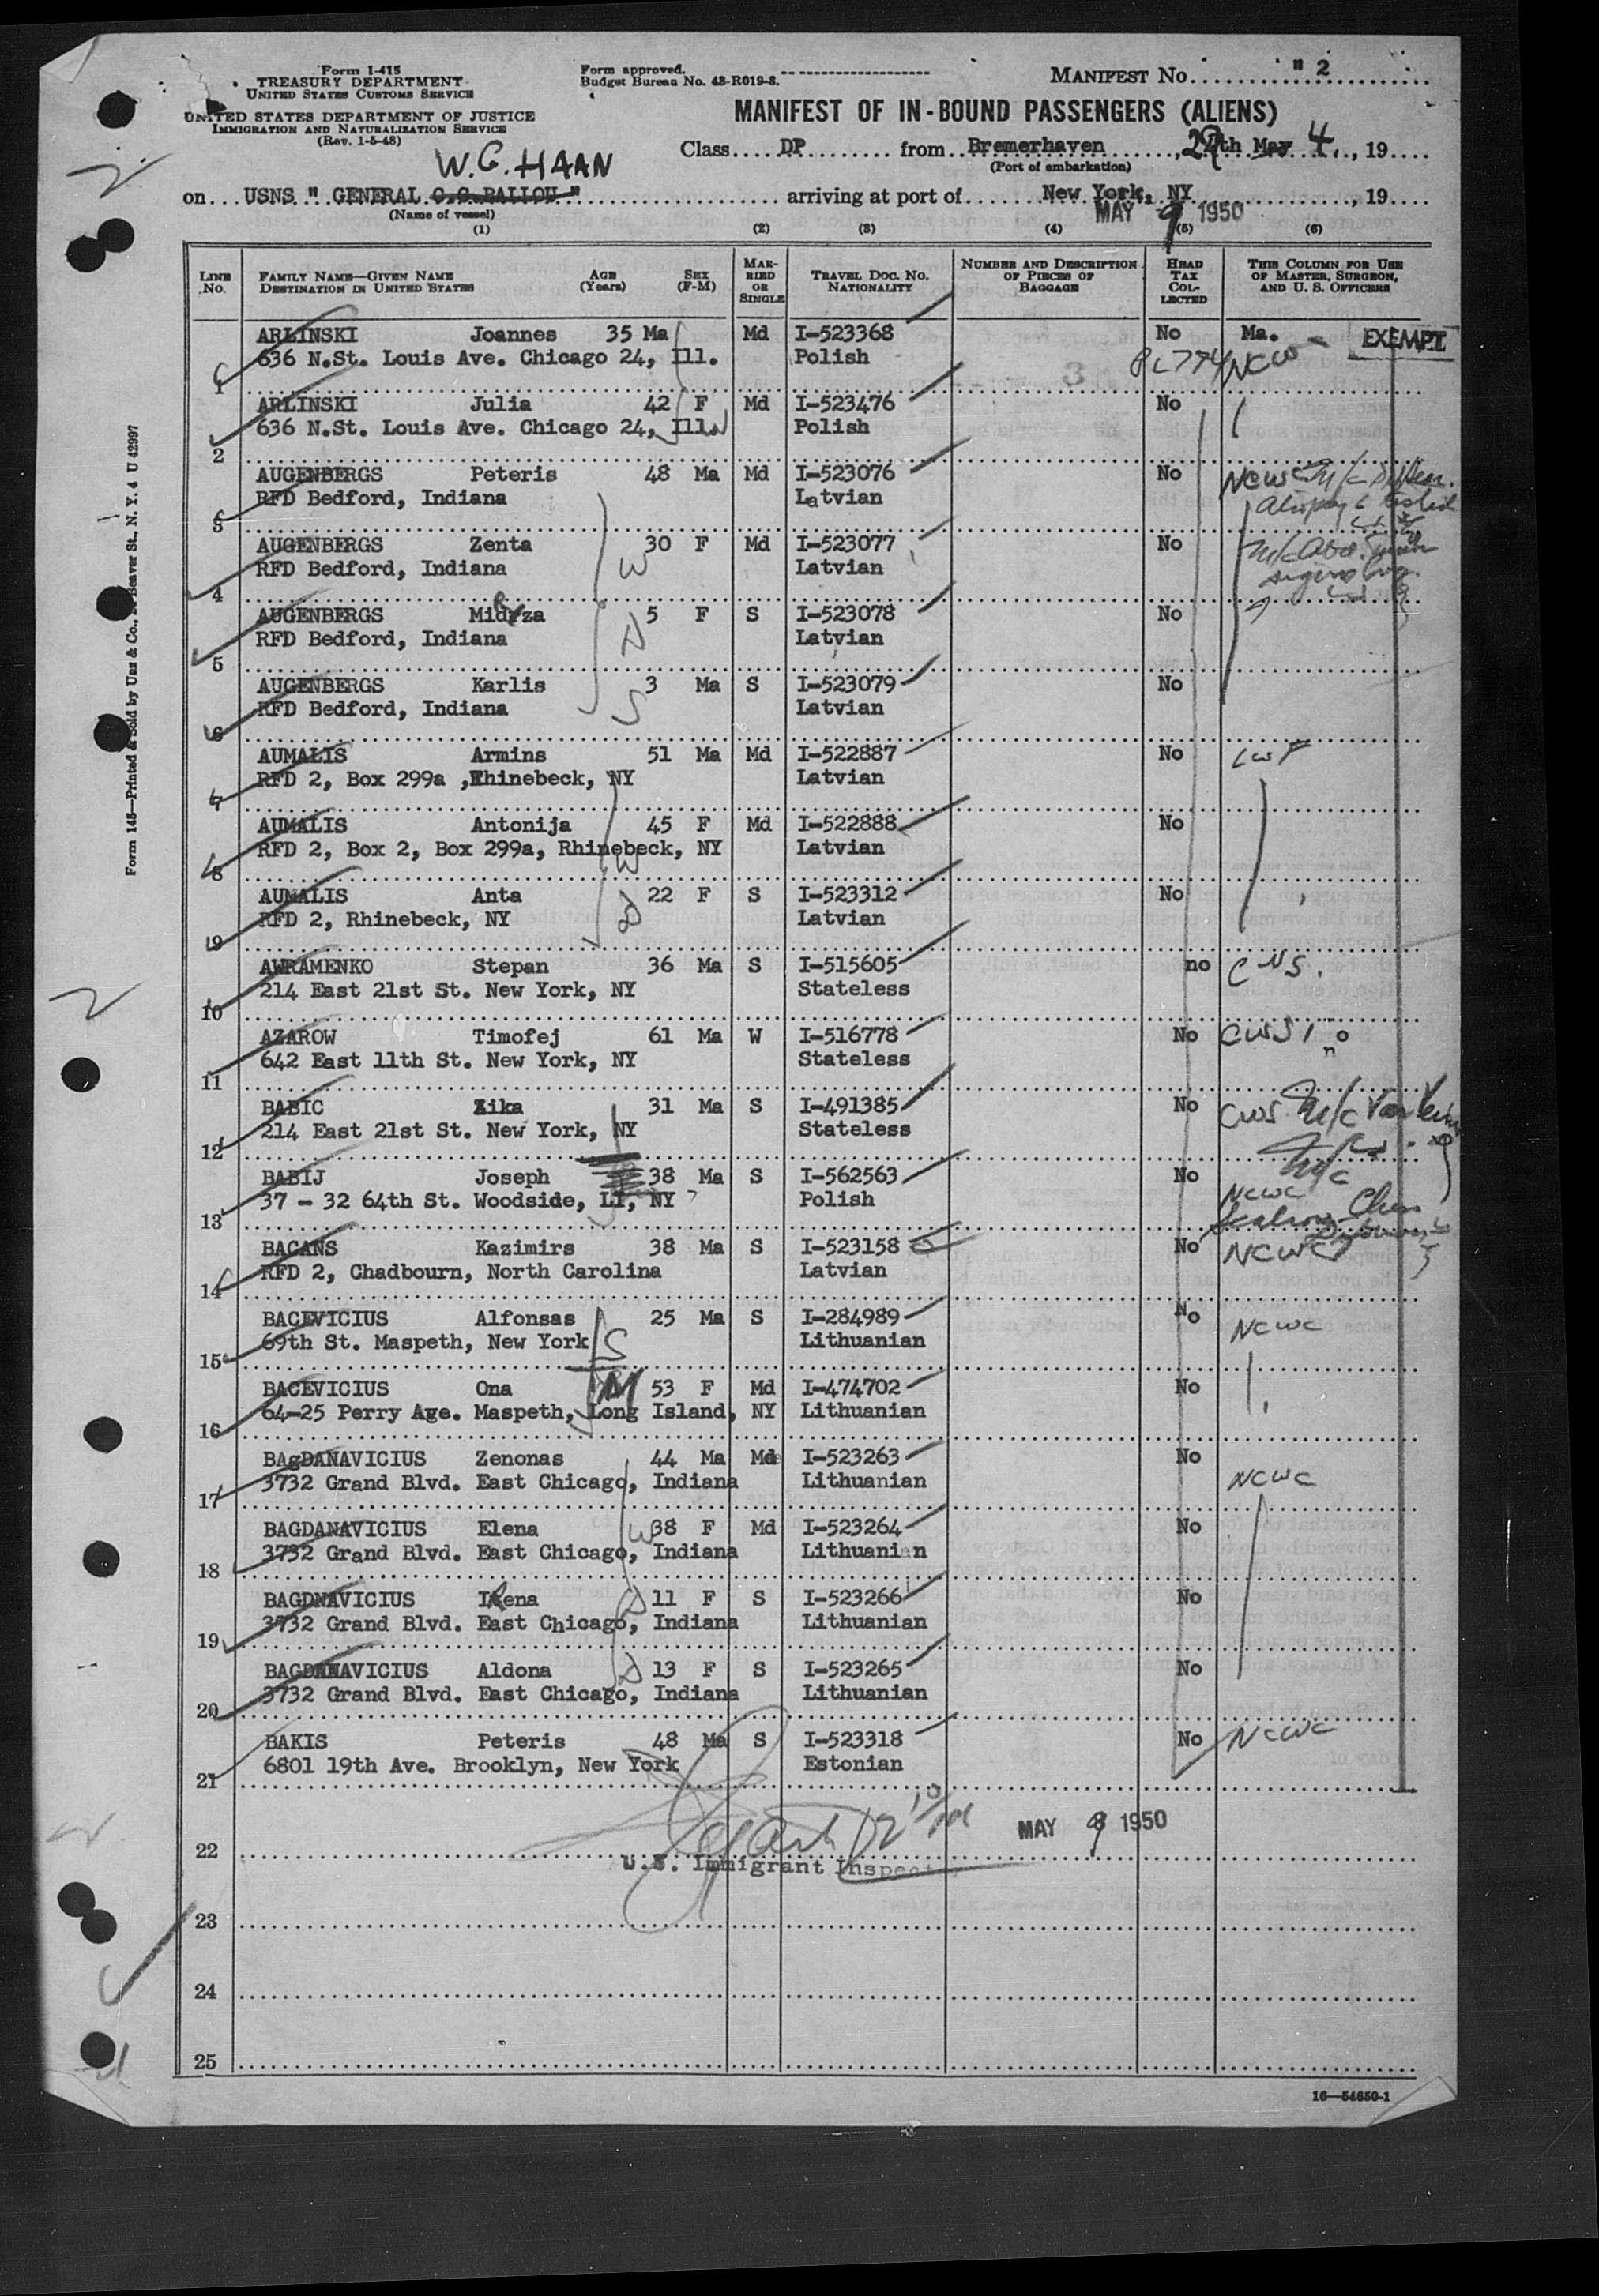 Form I-415
TREASURY DEPARTMENT
UNITED STATES CUSTOMS SERVICE
UNITED STATES DEPARTMENT OF JUSTICE
IMMIGRATION AND NATURALIZATION SERVICE
(Rev. 1-5-48)
Form approved.
Budget Bureau No. 43-R019-3.
MANIFEST No. " 2
MANIFEST OF IN-BOUND PASSENGERS (ALIENS)
Class DP from Bremerhaven, th May 4, 19
(Port of embarkation)
W.G. HAAN
on USNS " GENERAL C.C.BALLOU " arriving at port of New York, NY, 19
(Name of vessel)
MAY 9 1950
(1) (2) (3) (4) (5) (6)
LINE No. FAMILY NAME—GIVEN NAME DESTINATION IN UNITED STATES AGE (YEARS) SEX (F-M) MARRIED OR SINGLE TRAVEL DOC. NO. NATIONALITY NUMBER AND DESCRIPTION OF PIECES OF BAGGAGE HEAD TAX COLLECTED THIS COLUMN FOR USE OF MASTER, SURGEON, AND U. S. OFFICERS
ARLINSKI Joannes 35 Ma Md I-523368 No Ma. EXEMPT
636 N.St. Louis Ave. Chicago 24, Ill. Polish PL774 NCW
1
ARLINSKI Julia 42 F Md I-523476 No
636 N.St. Louis Ave. Chicago 24, Ill. Polish
2
AUGENBERGS Peteris 48 Ma Md I-523076 No NCWC
RFD Bedford, Indiana Latvian
3
AUGENBERGS Zenta 30 F Md I-523077 No
RFD Bedford, Indiana Latvian
4
AUGENBERGS Midrza 5 F S I-523078 No
RFD Bedford, Indiana Latvian
5
AUGENBERGS Karlis 3 Ma S I-523079 No
RFD Bedford, Indiana Latvian
6
AUMALIS Armins 51 Ma Md I-522887 No LWF
RFD 2, Box 299a ,Rhinebeck, NY Latvian
7
AUMALIS Antonija 45 F Md I-522888 No
RFD 2, Box 2, Box 299a, Rhinebeck, NY Latvian
8
AUMALIS Anta 22 F S I-523312 No
RFD 2, Rhinebeck, NY Latvian
9
AWRAMENKO Stepan 36 Ma S I-515605 no CWS.
214 East 21st St. New York, NY Stateless
10
AZAROW Timofej 61 Ma W I-516778 No CWS
642 East 11th St. New York, NY Stateless
11
BABIC Zika 31 Ma S I-491385 No CWS
214 East 21st St. New York, NY Stateless
12
BABIJ Joseph 38 Ma S I-562563 No
37 - 32 64th St. Woodside, LI, NY Polish NCWC
13
BACANS Kazimirs 38 Ma S I-523158 No NCWC
RFD 2, Chadbourn, North Carolina Latvian
14
BACEVICIUS Alfonsas 25 Ma S I-284989 No NCWC
69th St. Maspeth, New York Lithuanian
15
BACEVICIUS Ona 53 F Md I-474702 No
64-25 Perry Age. Maspeth, Long Island, NY Lithuanian
16
BAgDANAVICIUS Zenonas 44 Ma Md I-523263 No
3732 Grand Blvd. East Chicago, Indiana Lithuanian NCWC
17
BAGDANAVICIUS Elena 38 F Md I-523264 No
3732 Grand Blvd. East Chicago, Indiana Lithuanian
18
BAGDNAVICIUS IRena 11 F S I-523266 No
3732 Grand Blvd. East Chicago, Indiana Lithuanian
19
BAGDANAVICIUS Aldona 13 F S I-523265 No
3732 Grand Blvd. East Chicago, Indiana Lithuanian
20
BAKIS Peteris 48 Ma S I-523318 No NCWC
6801 19th Ave. Brooklyn, New York Estonian
21
MAY 9 1950
22
U.S. Immigrant Inspect
23
24
25
16—54650-1
Form 145—Printed & Sold by Unz & Co., Beaver St., N. Y. 4 U 42997